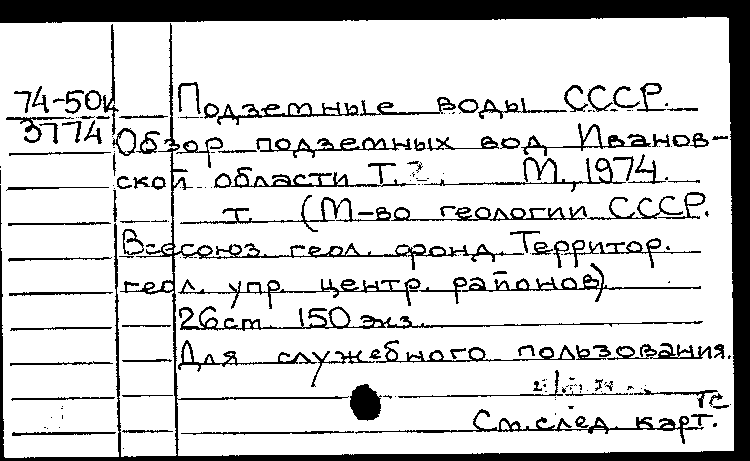 74-50к Подземные воды СССР.
3774 Обзор подземных вод Иванов-
ской области Т.2. М., 1974.
т. (М-во геологии СССР.
Всесоюз. геол. фонд. Территор.
геол. упр. центр. районов).
26см. 150 экз.
Для служебного пользования.
ТС
См. след. карт.